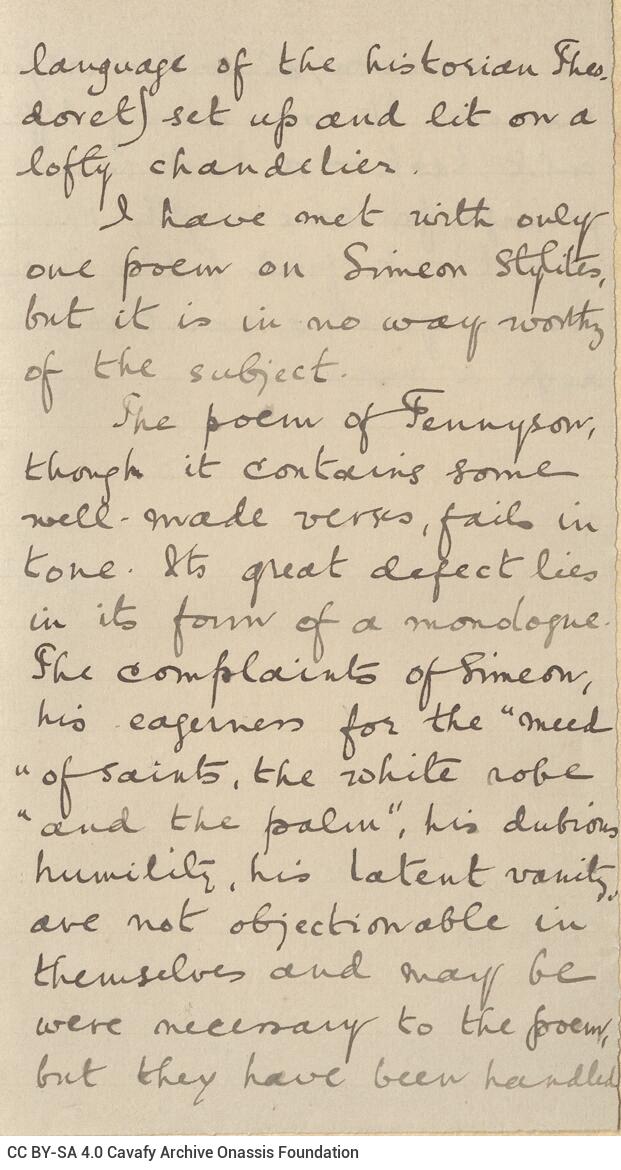 language of the historian Theo-
doret) set up and lit on a
lofty chandelier.
I have met with only
one poem on Simeon Stylites,
but it is in no way worthy
of the subject.
The poem of Tennyson,
though it contains some
well-made verses, fails in
tone. Its great defect lies
in its form of a monologue.
The complaints of Simeon,
his eagerness for the "meed
"of saints, the white robe
"and the palm", his dubious
humility, his latent vanity,
are not objectionable in
themselves and may be
were necessary to the poem,
but they have been handled
CC BY-SA 4.0 Cavafy Archive Onassis Foundation